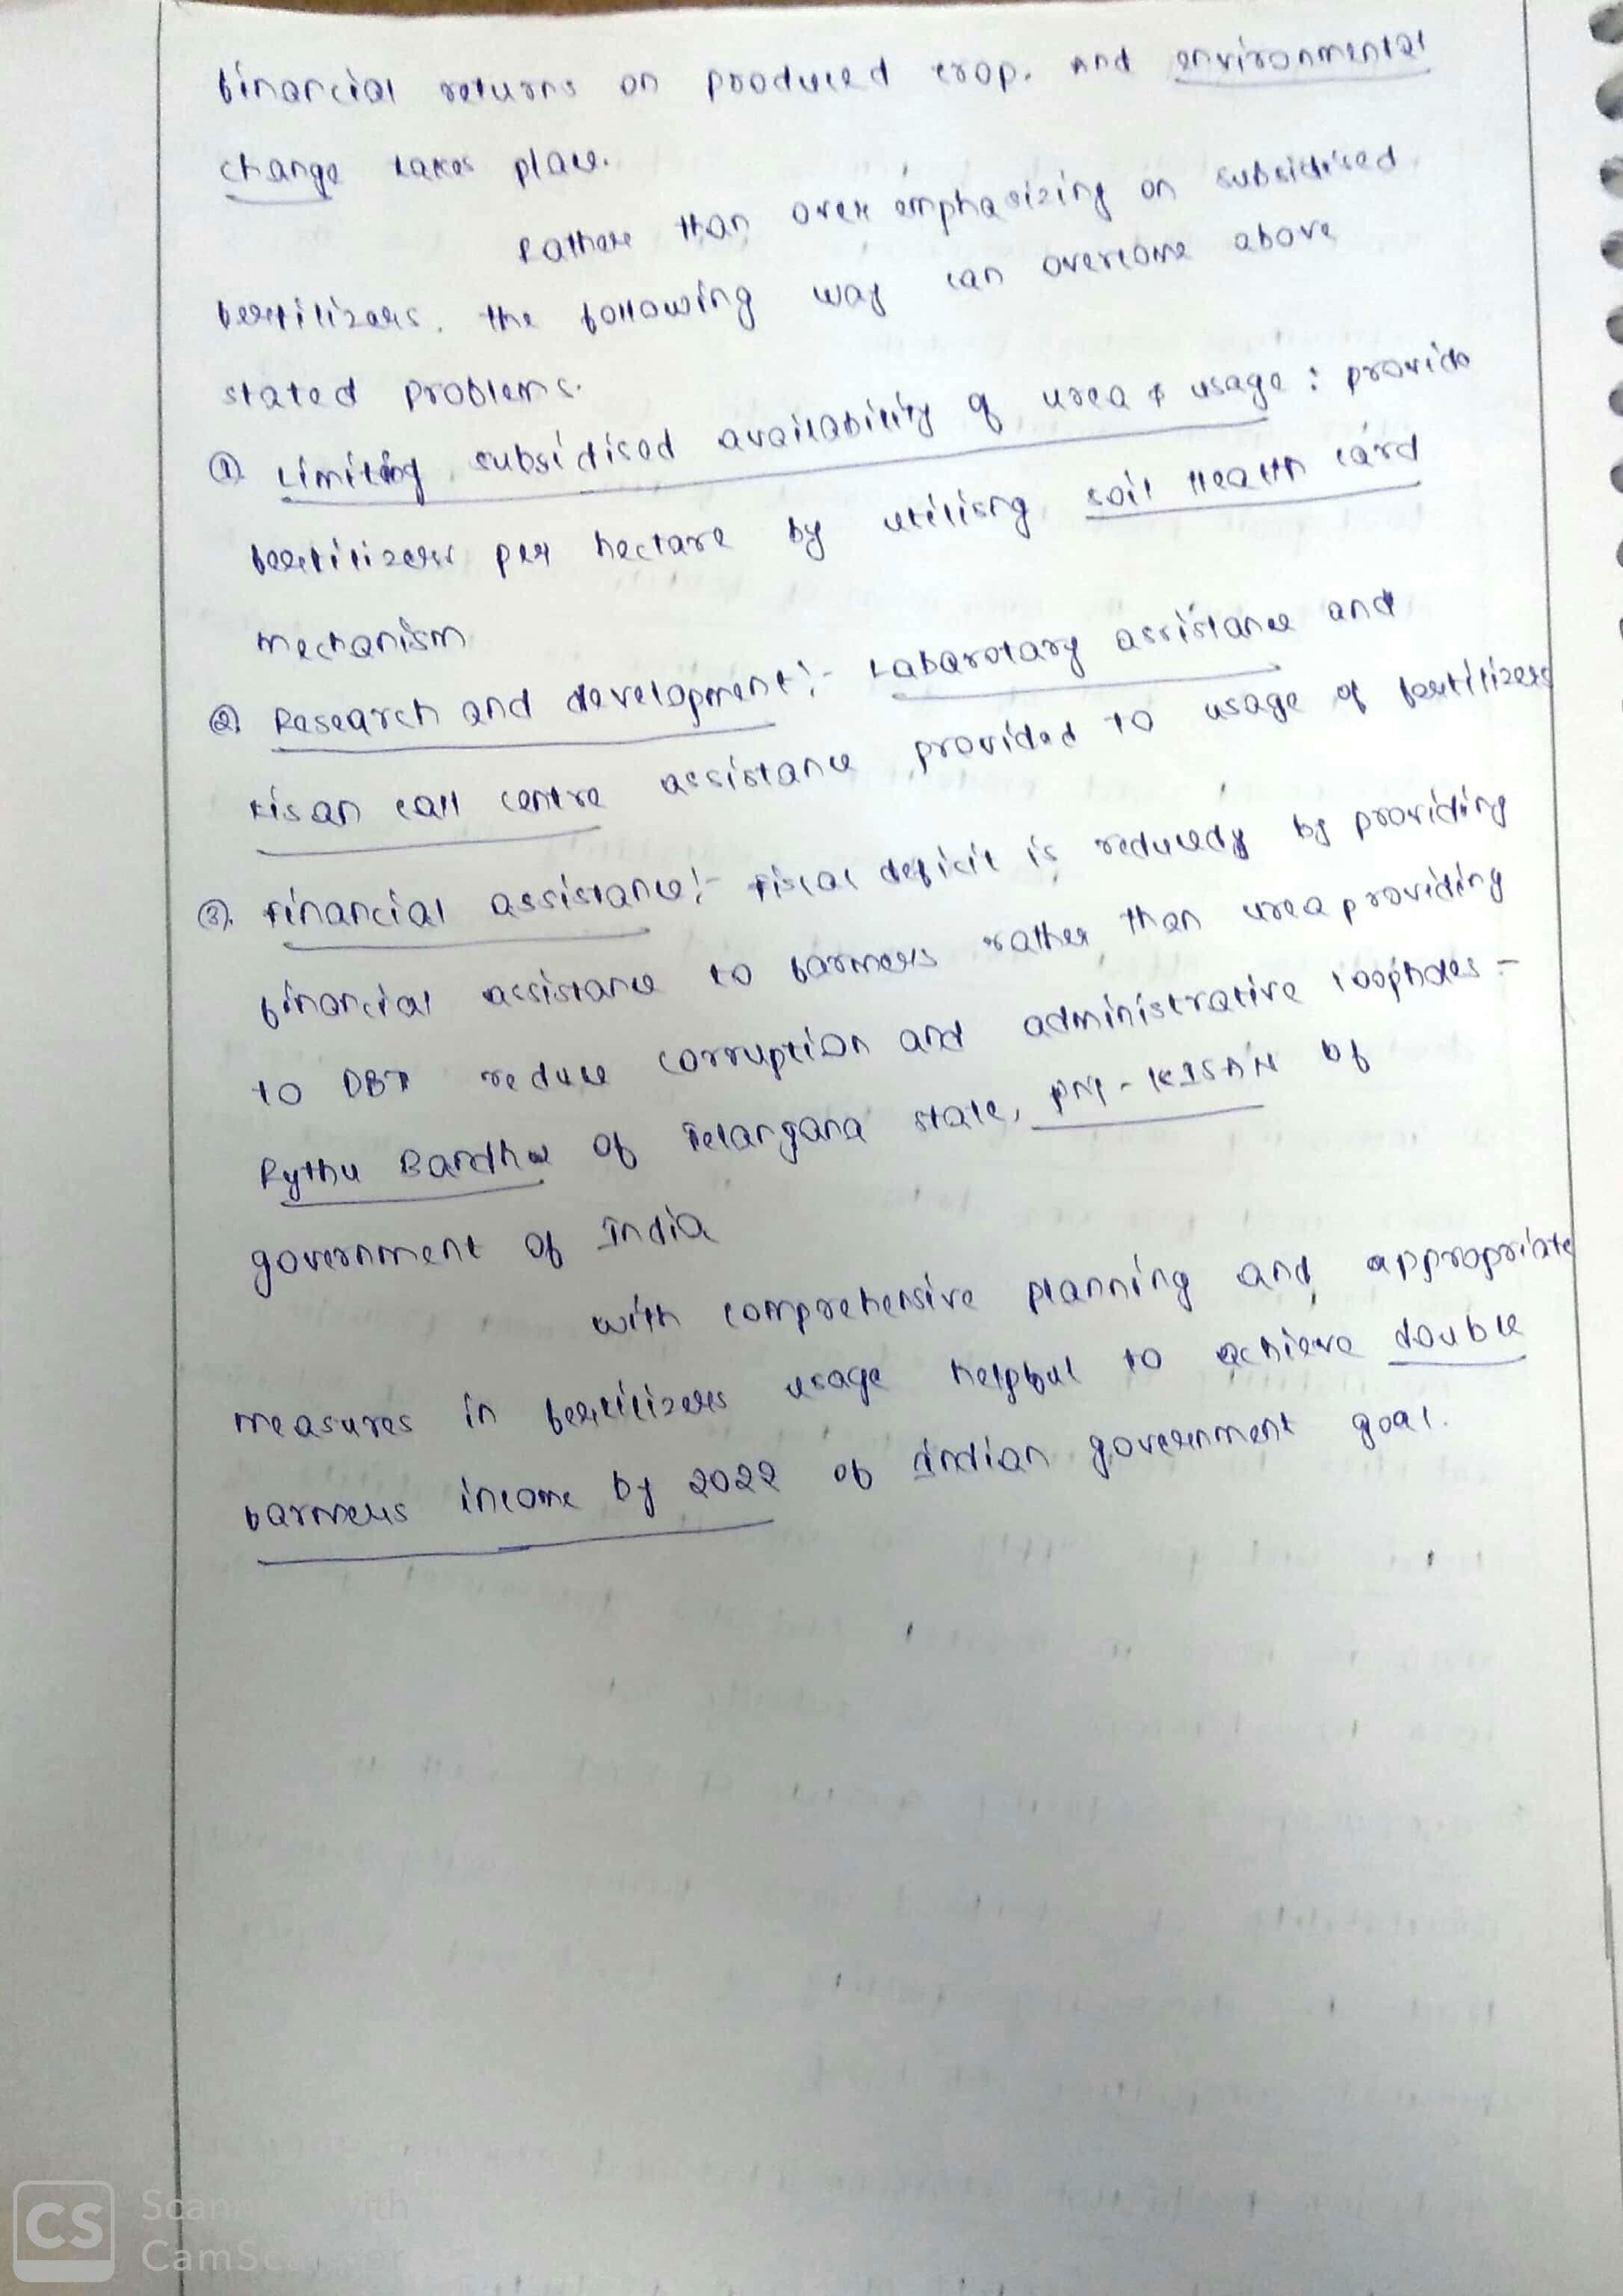 financial returns on produced crop. And environmental
change takes place.
Rather than over emphasizing on subsidised
fertilizers. the following way can overcome above
stated problems.
① Limiting subsidised availability of urea & usage : provide
fertilizers per hectare by utilisng soil Health card
mechanism
② Research and development:- Labarotary assistance and
kisan call centre assistance provided to usage of fertilizers
③. Financial assistance:- Fiscal deficit is reducedy by providing
financial assistance to farmers rather than urea providing
to DBT reduce corruption and administrative loopholes -
Rythu Bandhu of Telangana state, PM-KISAN of
government of India
with comprehensive planning and appropriate
measures in fertilizers usage helpful to achieve double
farmers income by 2022 of indian government goal.
CS
Scanned with
CamScanner